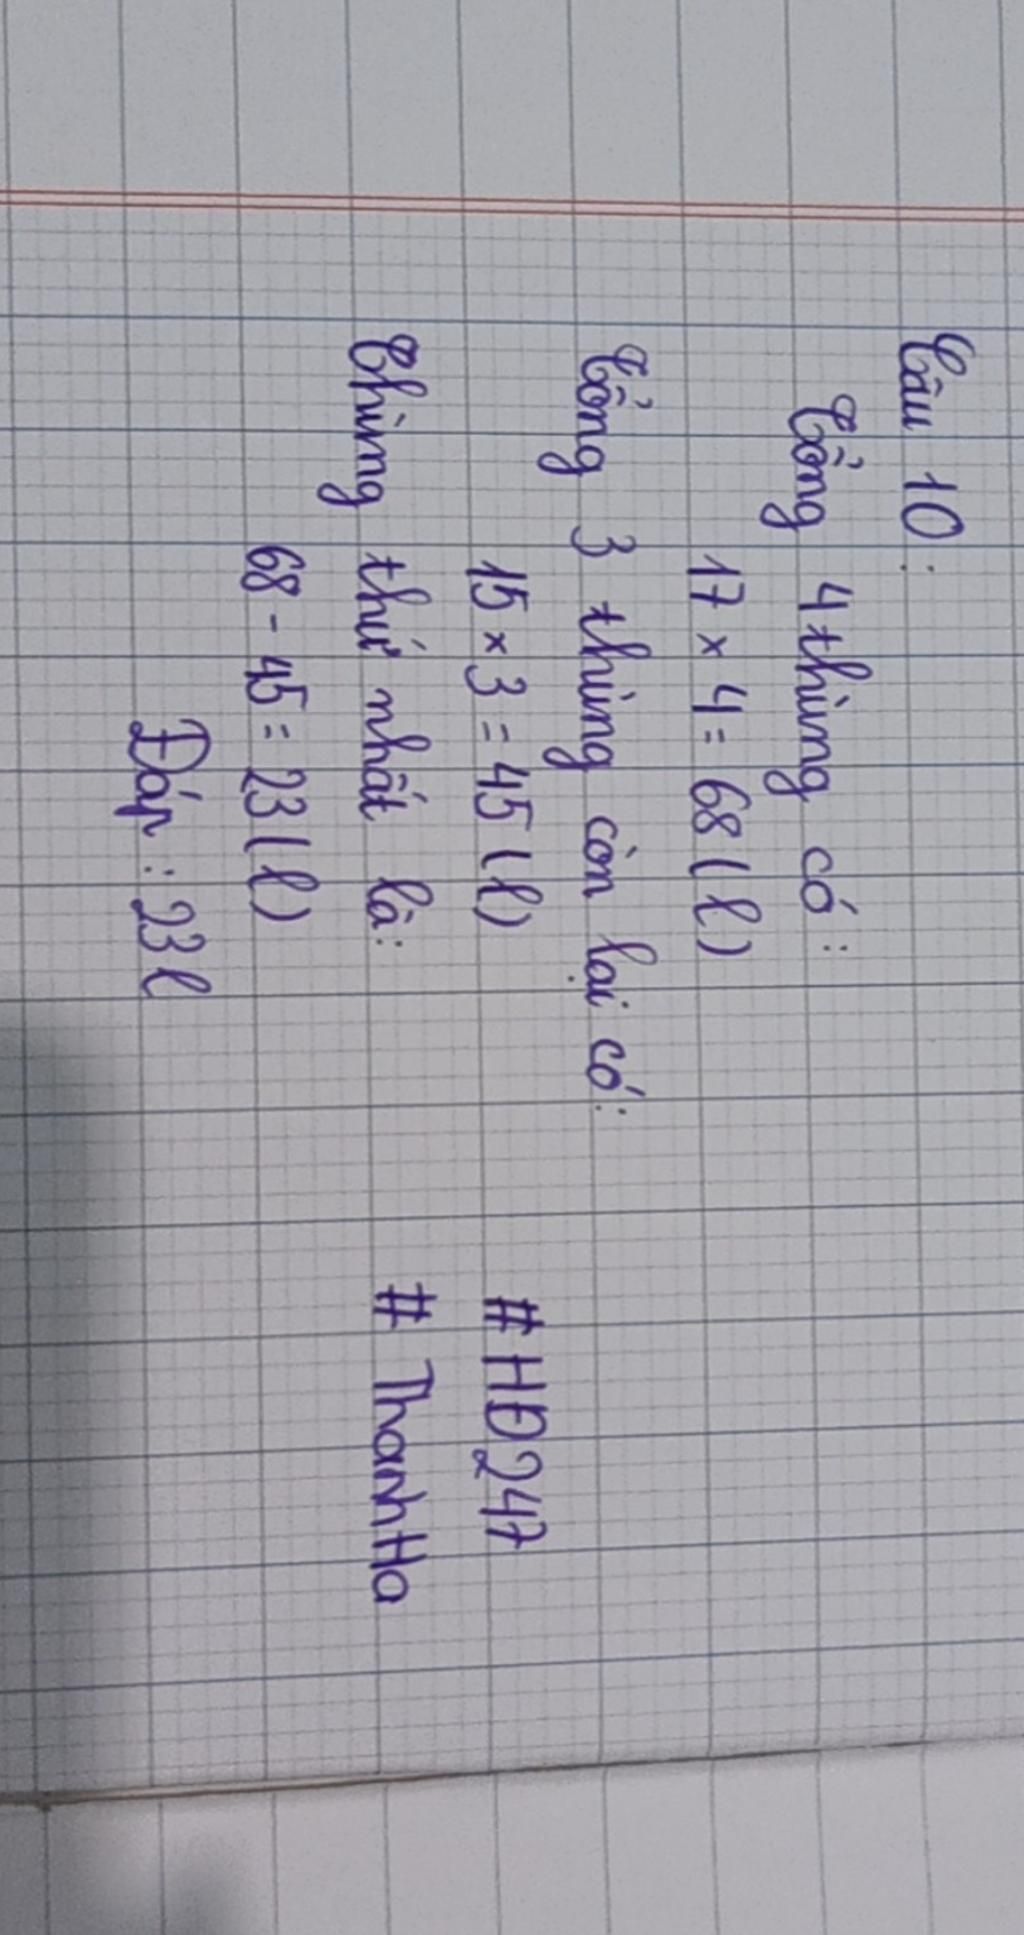 Câu 10:
Tổng 4 thùng có:
17 × 4 = 68 (l)
Tổng 3 thùng còn lại có:
15 × 3 = 45 (l)
Thùng thứ nhất là:
68 - 45 = 23 (l)
Đáp: 23 l
#HĐ247
# ThanhHa